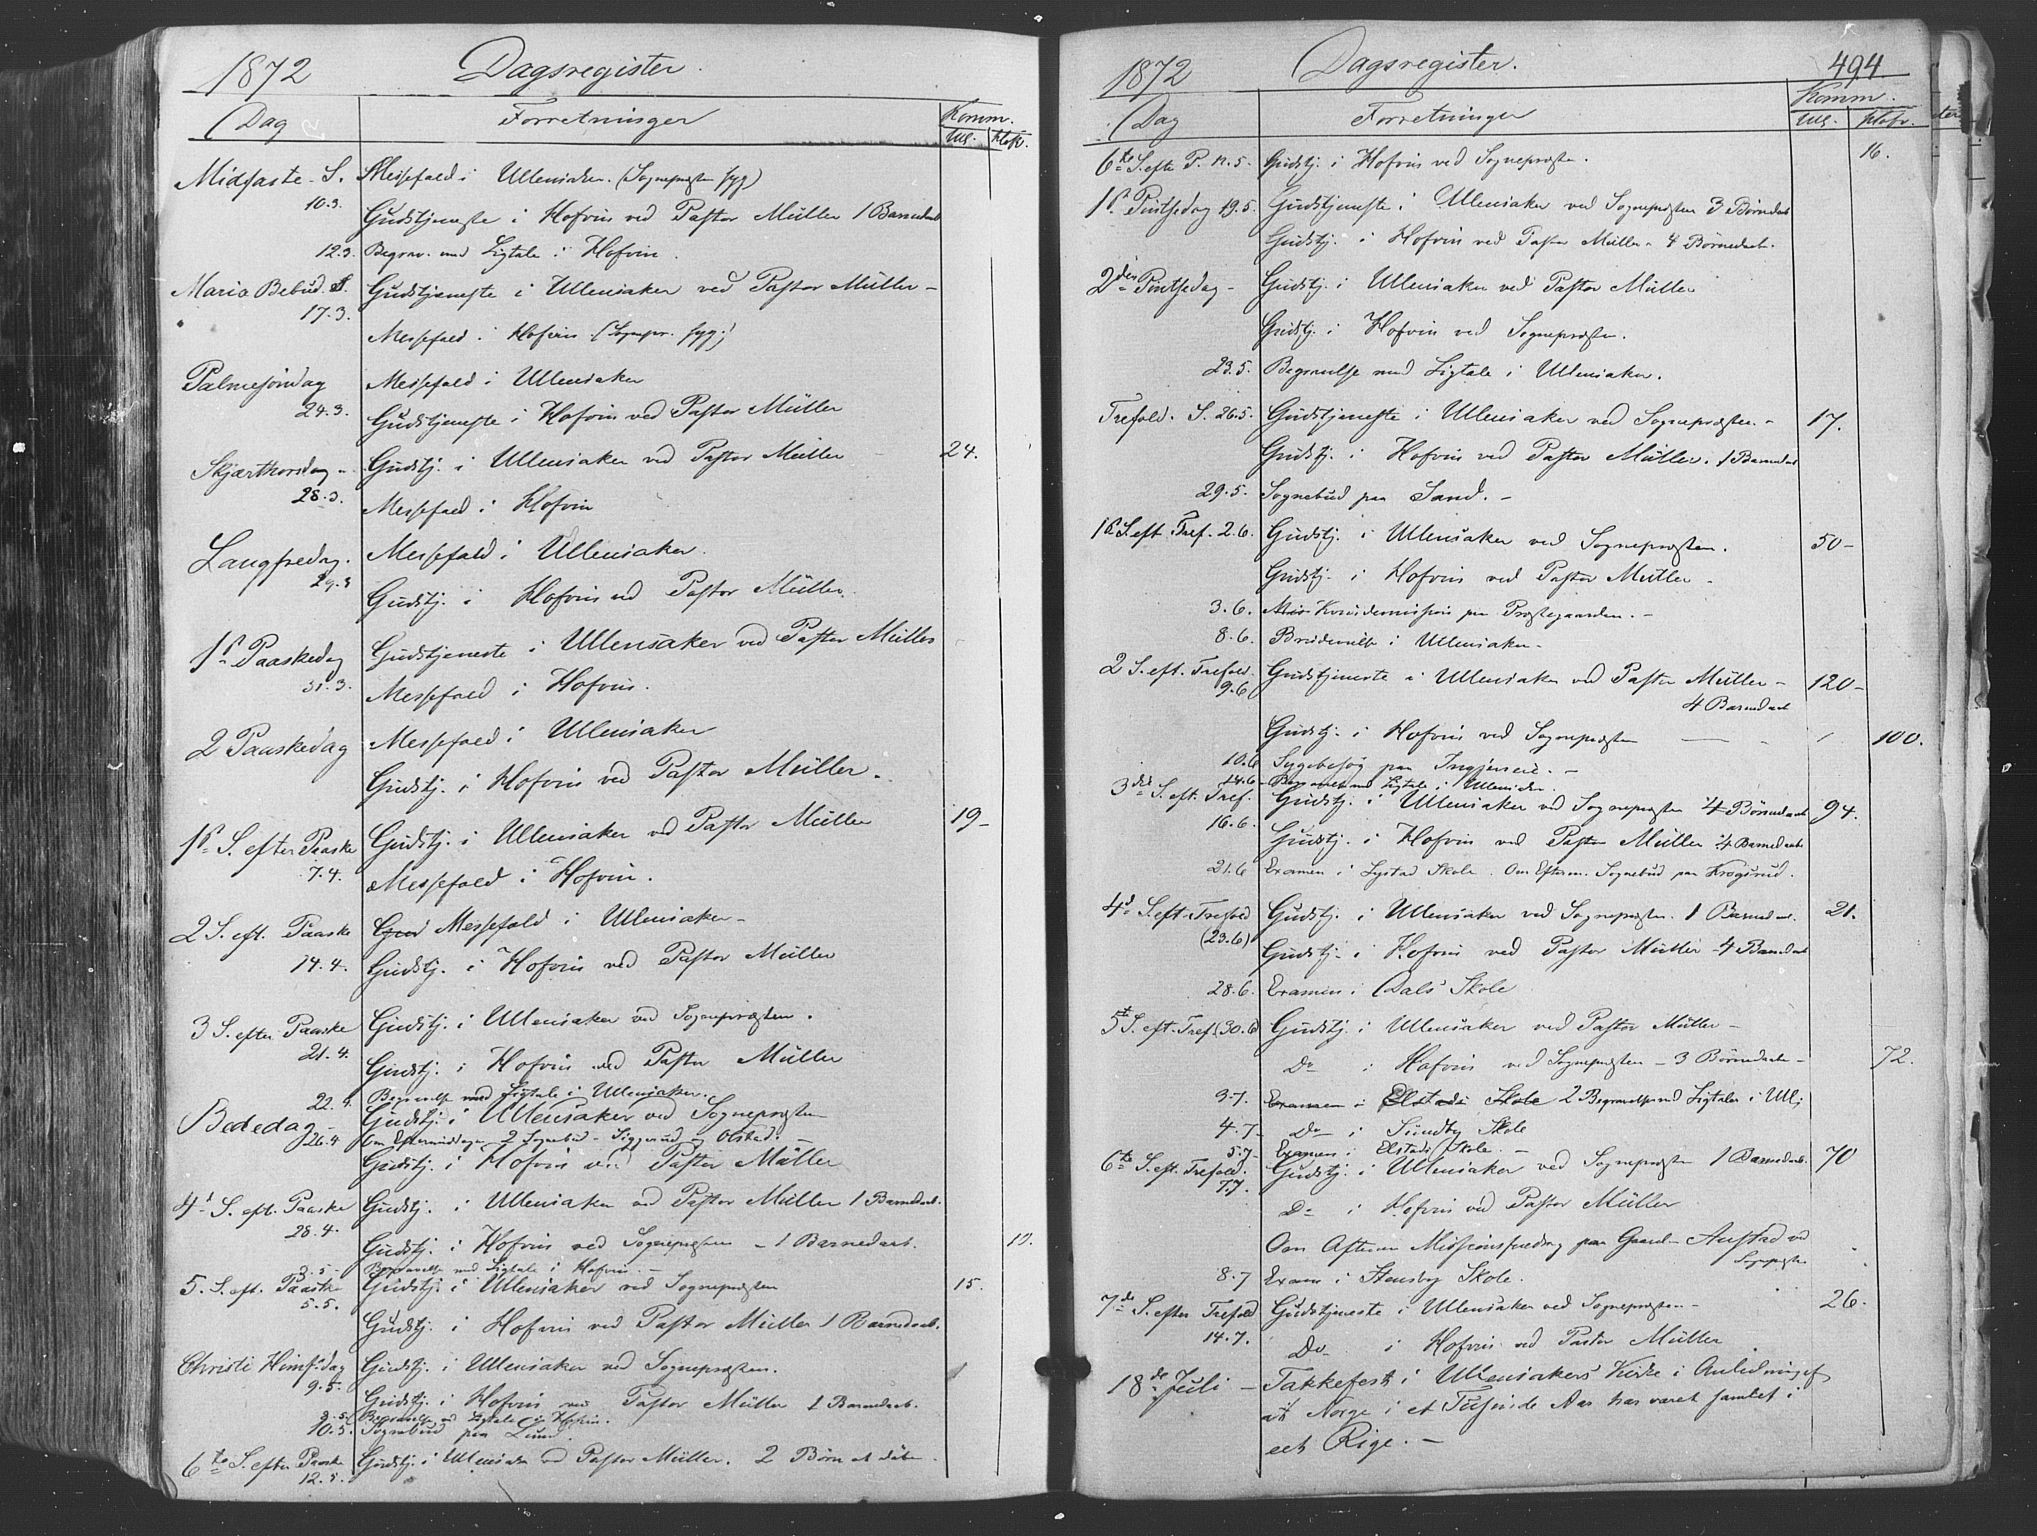 1872 Dagsregister.
Dag Forretninger Komm.
Ull. Hofv.
Midfaste S. Messefald i Ullensaker. (Sognepræsten syg)
10.3. Gudstjeneste i Hofvin ved Pastor Müller 1 Barnedaab
12.3. Begrav. med Ligtale i Hofvin.
Maria Bebud. S. Gudstjeneste i Ullensaker ved Pastor Müller –
17.3. Messefald i Hofvin (Sognepr. syg)
Palmesöndag Messefald i Ullensaker
24.3. Gudstjeneste i Hofvin ved Pastor Müller
Skjærthorsdag – Gudstj. i Ullensaker ved Pastor Müller – 24.
28.3. Messefald i Hofvin
Langfredag. Messefald i Ullensaker.
29.3 Gudstj. i Hofvin ved Pastor Müller.
1ste Paaskedag Gudstjeneste i Ullensaker ved Pastor Müller
31.3. Messefald i Hofvin.
2 Paaskedag Messefald i Ullensaker
Gudstj. i Hofvin ved Pastor Müller.
1ste S. efter Paaske Gudstj. i Ullensaker ved Pastor Müller 19–
7.4. Messefald i Hofvin.
2 S. eft. Paaske Gud Messefald i Ullensaker –
14.4. Gudstj. i Hofvin ved Pastor Müller
3 S. efter Paaske Gudstj. i Ullensaker ved Sognepræsten.
21.4. Gudstj. i Hofvin ved Pastor Müller
22.4. Begravelse med Ligtale i Ullensaker.
Bededag – Gudstj. i Ullensaker ved Sognepræsten
26.4 Om Eftermiddagen 2 Sognebud – Siggerud og Olstad. –
Gudstj. i Hofvin ved Pastor Müller
4de S. eft. Paaske Gudstj. i Ullensaker ved Pastor Müller 1 Barnedaab.
28.4. Gudstj. i Hofvin ved Sognepræsten – 1 Barnedaab.
3.5 – Begravelse med Ligtale i Hofvin. –
5. S. eft. Paaske Gudstj. i Ullensaker ved Sognepræsten 15.
5.5. Gudstj. i Hofvin ved Pastor Müller 1 Barnedaab.
Christi Himf.dag Gudstj. i Ullensaker ved Sognepræsten.
9.5. Gudstj. i Hofvin ved Pastor Müller 1 Barnedaab.
Begravelse ved Ligtale i Hofvin.
10.5. Sognebud paa Lund.
6te S. efter Paaske Gudstj. i Ullensaker ved Pastor Müller. 2 Börn at döbe.
12.5.
1872 Dagsregister. 494
Dag Forretninger Komm.
Ull. Hofv.
6te S. efte P. 12.5. Gudstj. i Hofvin ved Sognepræsten. 16.
1ste Pintsedag 19.5. Gudstjeneste i Ullensaker ved Sognepræsten 3 Börnedaab
Gudstj. i Hofvin ved Pastor Müller – 4 Börnedaab.
2den Pintsedag – Gudstj. i Ullensaker ved Pastor Müller
Gudstj. i Hofvin ved Sognepræsten.
23.5. Begravelse med Ligtale i Ullensaker.
Trefold. S. 26.5. Gudstjeneste i Ullensaker ved Sognepræsten. – 17.
Gudstj. i Hofvin ved Pastor Müller. 1 Barnedaab
29.5. Sognebud paa Sand. –
1ste S. eft. Tref. 2.6. Gudstj. i Ullensaker ved Sognepræsten. 50 –
Gudstj. i Hofvin ved Pastor Müller –
3.6. Mis Kvindemission paa Præstegaarden. –
8.6. Brudevielse i Ullensaker –
2 S. eft. Trefold. Gudstjeneste i Ullensaker ved Pastor Müller – 120 –
9.6 4 Barnedaab
Gudstj. i Hofvin ved Sognepræsten 100.
10.6 Sygebesög paa –
14.6 – Begravelse med Ligtale i Ullensaker.
3die S. eft. Tref. Gudstj. i Ullensaker ved Sognepræsten 4 Börnedaab 94.
16.6. Gudstj. i Hofvin ved Pastor Müller 4 Barnedaab
21.6 Examen i Lystad Skole. Om Efterm. Sognebud paa Krogsrud.
4de S. eft. Trefold Gudstj. i Ullensaker ved Sognepræsten. 1 Barnedaab. 21.
(23.6) Gudstj. i Hofvin ved Pastor Müller 4 Barnedaab
28.6. Examen i Dals Skole
5te S. eft. Tref. (30.6) Gudstj. i Ullensaker ved Pastor Müller –
Do i Hofvin ved Sognepræsten – 3 Börnedaab – 72.
3.7. Examen i Elstads Skole 2 Begravelse ved Ligtaler i Ull;
4.7 – Do i Sundby Skole
5.7 – Examen i Elstads Skole. –
6te S. eft. Trefold. Gudstj. i Ullensaker ved Sognepræsten 1 Barnedaab. 70
7.7. Do i Hofvin ved Pastor Müller
Om Aftenen Missionsforedrag paa Gaard. Aurstad ved
Sognepræsten
8.7 Exam i Stensby Skole.
7de S. efter Trefold Gudstjeneste i Ullensaker ved Sognepræsten – 26.
14.7. Do i Hofvin ved Pastor Müller
18de Juli – Takkefest i Ullensakers Kirke i Anledning af
at Norge i et Tusinde Aar har været samlet i
eet Rige. –